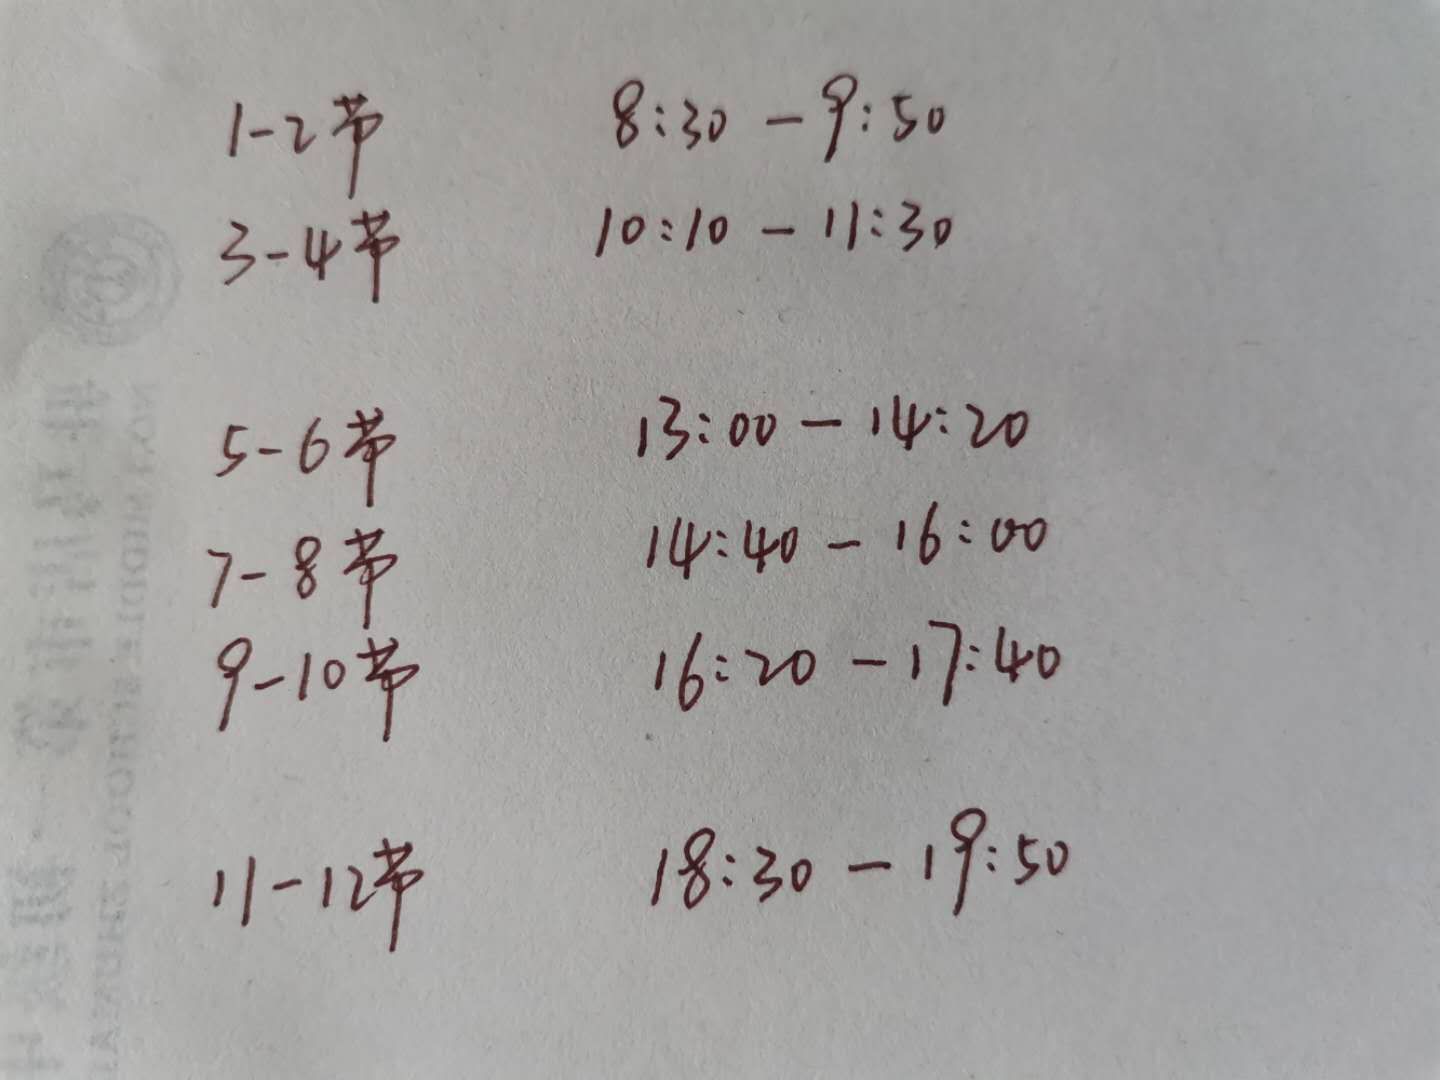 1-2节 8:30-9:50
3-4节 10:10-11:30
5-6节 13:00-14:20
7-8节 14:40-16:00
9-10节 16:20-17:40
11-12节 18:30-19:50